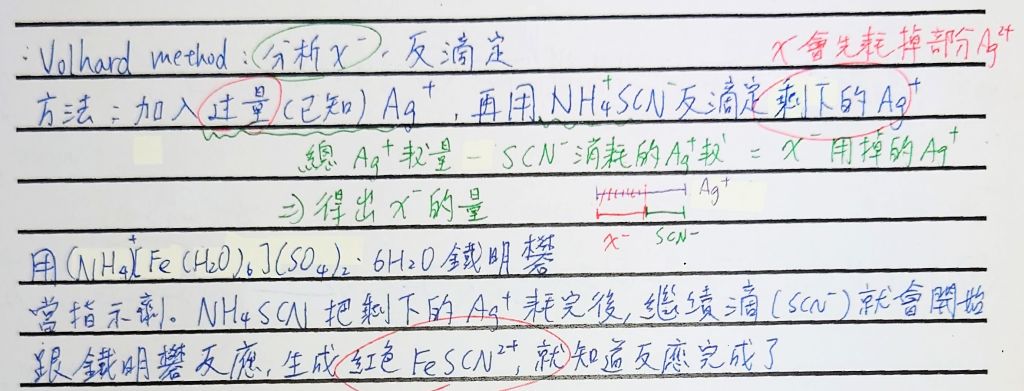 :Volhard method:分析x⁻,反滴定
x⁻會先耗掉部分Ag²⁺
方法:加入过量(已知)Ag⁺,再用NH₄⁺SCN⁻反滴定剩下的Ag⁺
總Ag⁺數量-SCN⁻消耗的Ag⁺數=x⁻用掉的Ag⁺
⇒得出x⁻的量
Ag⁺
x⁻ SCN⁻
用(NH₄)⁺[Fe(H₂O)₆](SO₄)₂·6H₂O鐵明礬
當指示劑。NH₄SCN把剩下的Ag⁺耗完後,繼續滴(SCN⁻)就會開始
跟鐵明礬反應,生成紅色FeSCN²⁺,就知道反應完成了